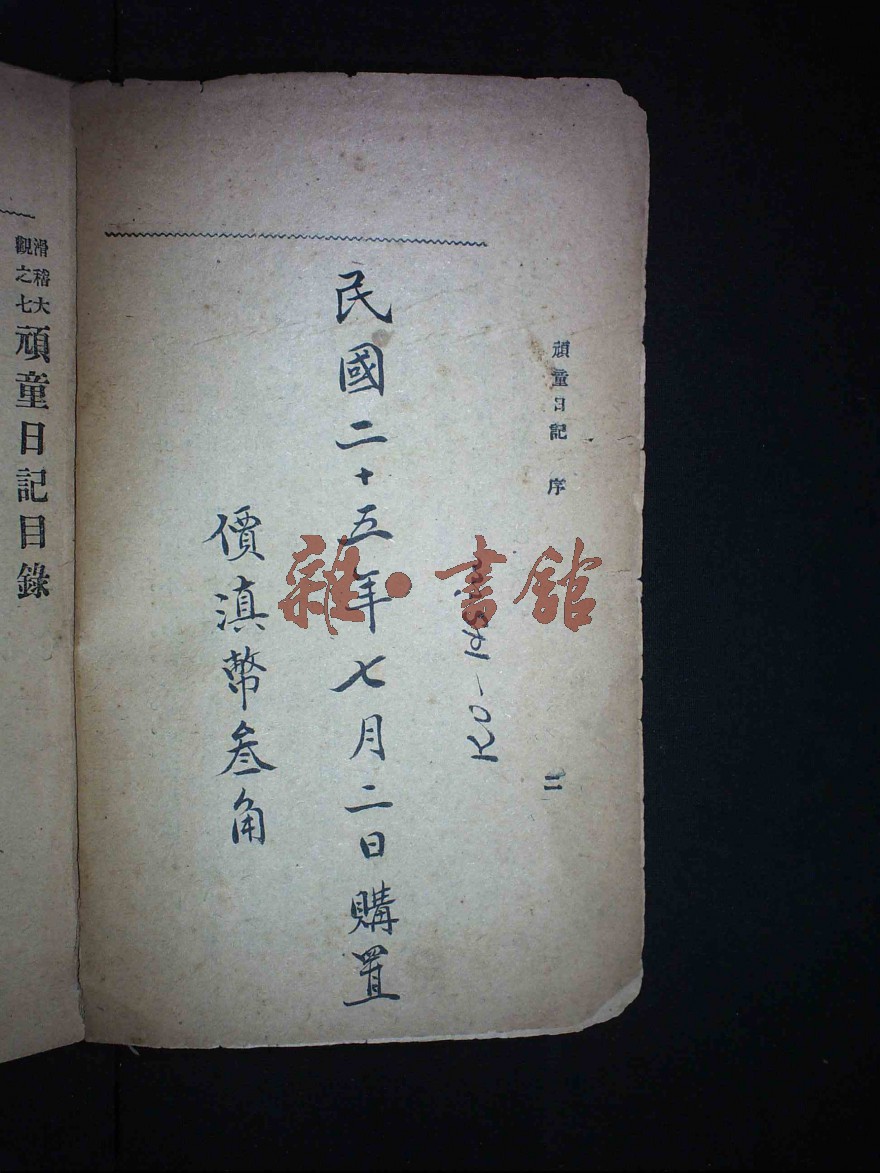 頑童日記 序
二
民國二十五年七月二日購置
價滇幣叁角
滑稽大
觀之七
頑童日記目錄
雜·書館